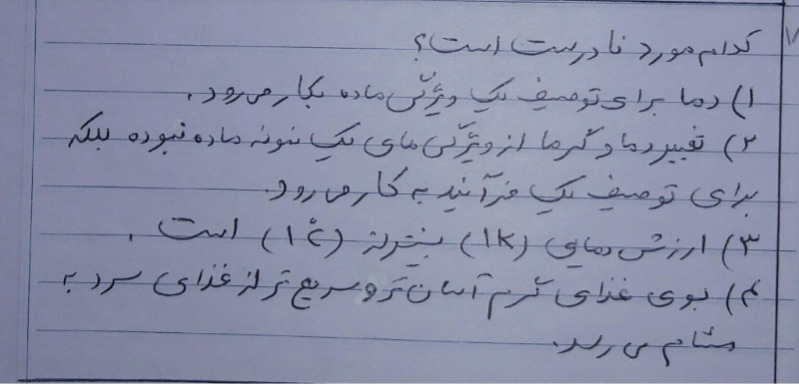 ۷
کدام مورد نادرست است؟
۱) دما برای توصیف یک ویژگی ماده بکار می‌رود.
۲) تغییر دما و گرما از ویژگی‌های یک نمونه ماده نبوده بلکه
برای توصیف یک فرآیند به کار می‌رود.
۳) ارزش دمایی (1K) بیشتر از (1°C) است.
۴) بوی غذای گرم آسان‌تر و سریع‌تر از غذای سرد به
مشام می‌رسد.